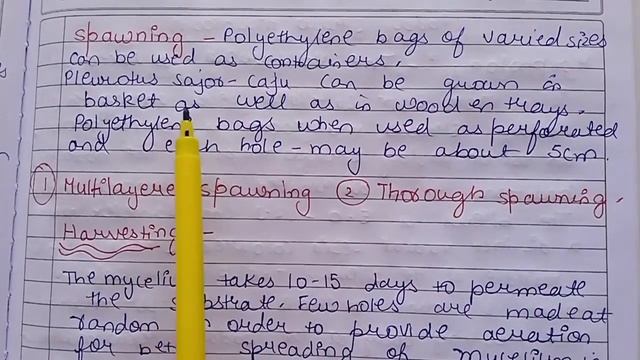 Spawning - Polyethylene bags of varied sizes
can be used as containers.
Pleurotus sajor-caju can be grown in
basket as well as in wooden trays.
Polyethylen bags when used as perforated
and hole - may be about 5cm.
① Multilayere spawning ② Thorough spawning.
Harvesting -
The myceliu takes 10-15 days to permeate
the substrate. Few holes are made at
random in order to provide aeration
for spreading of